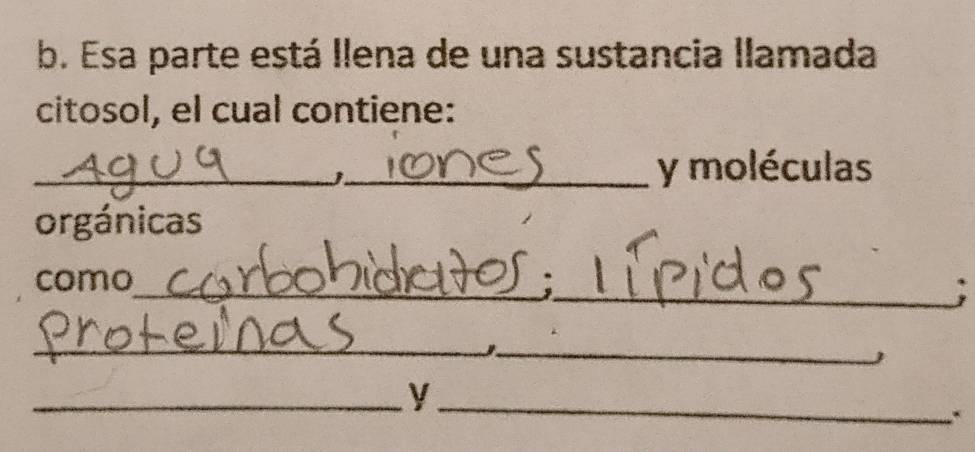 b. Esa parte está llena de una sustancia llamada
citosol, el cual contiene:
Agua, iones y moléculas
orgánicas
como carbohidratos; lípidos;
proteínas,               ,
               y               .